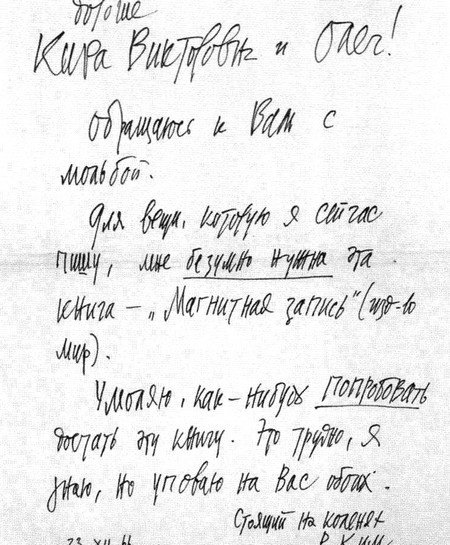 дорогие
Кира Викторовна и Олег!
Обращаюсь к Вам с
мольбой.
Для вещи, которую я сейчас
пишу, мне безумно нужна эта
книга – „Магнитная запись" (изд-во
Мир).
Умоляю, как-нибудь попробовать
достать эту книгу. Это трудно, я
знаю, но уповаю на Вас обоих.
Стоящий на коленях
Р. Ким
23 XII 66